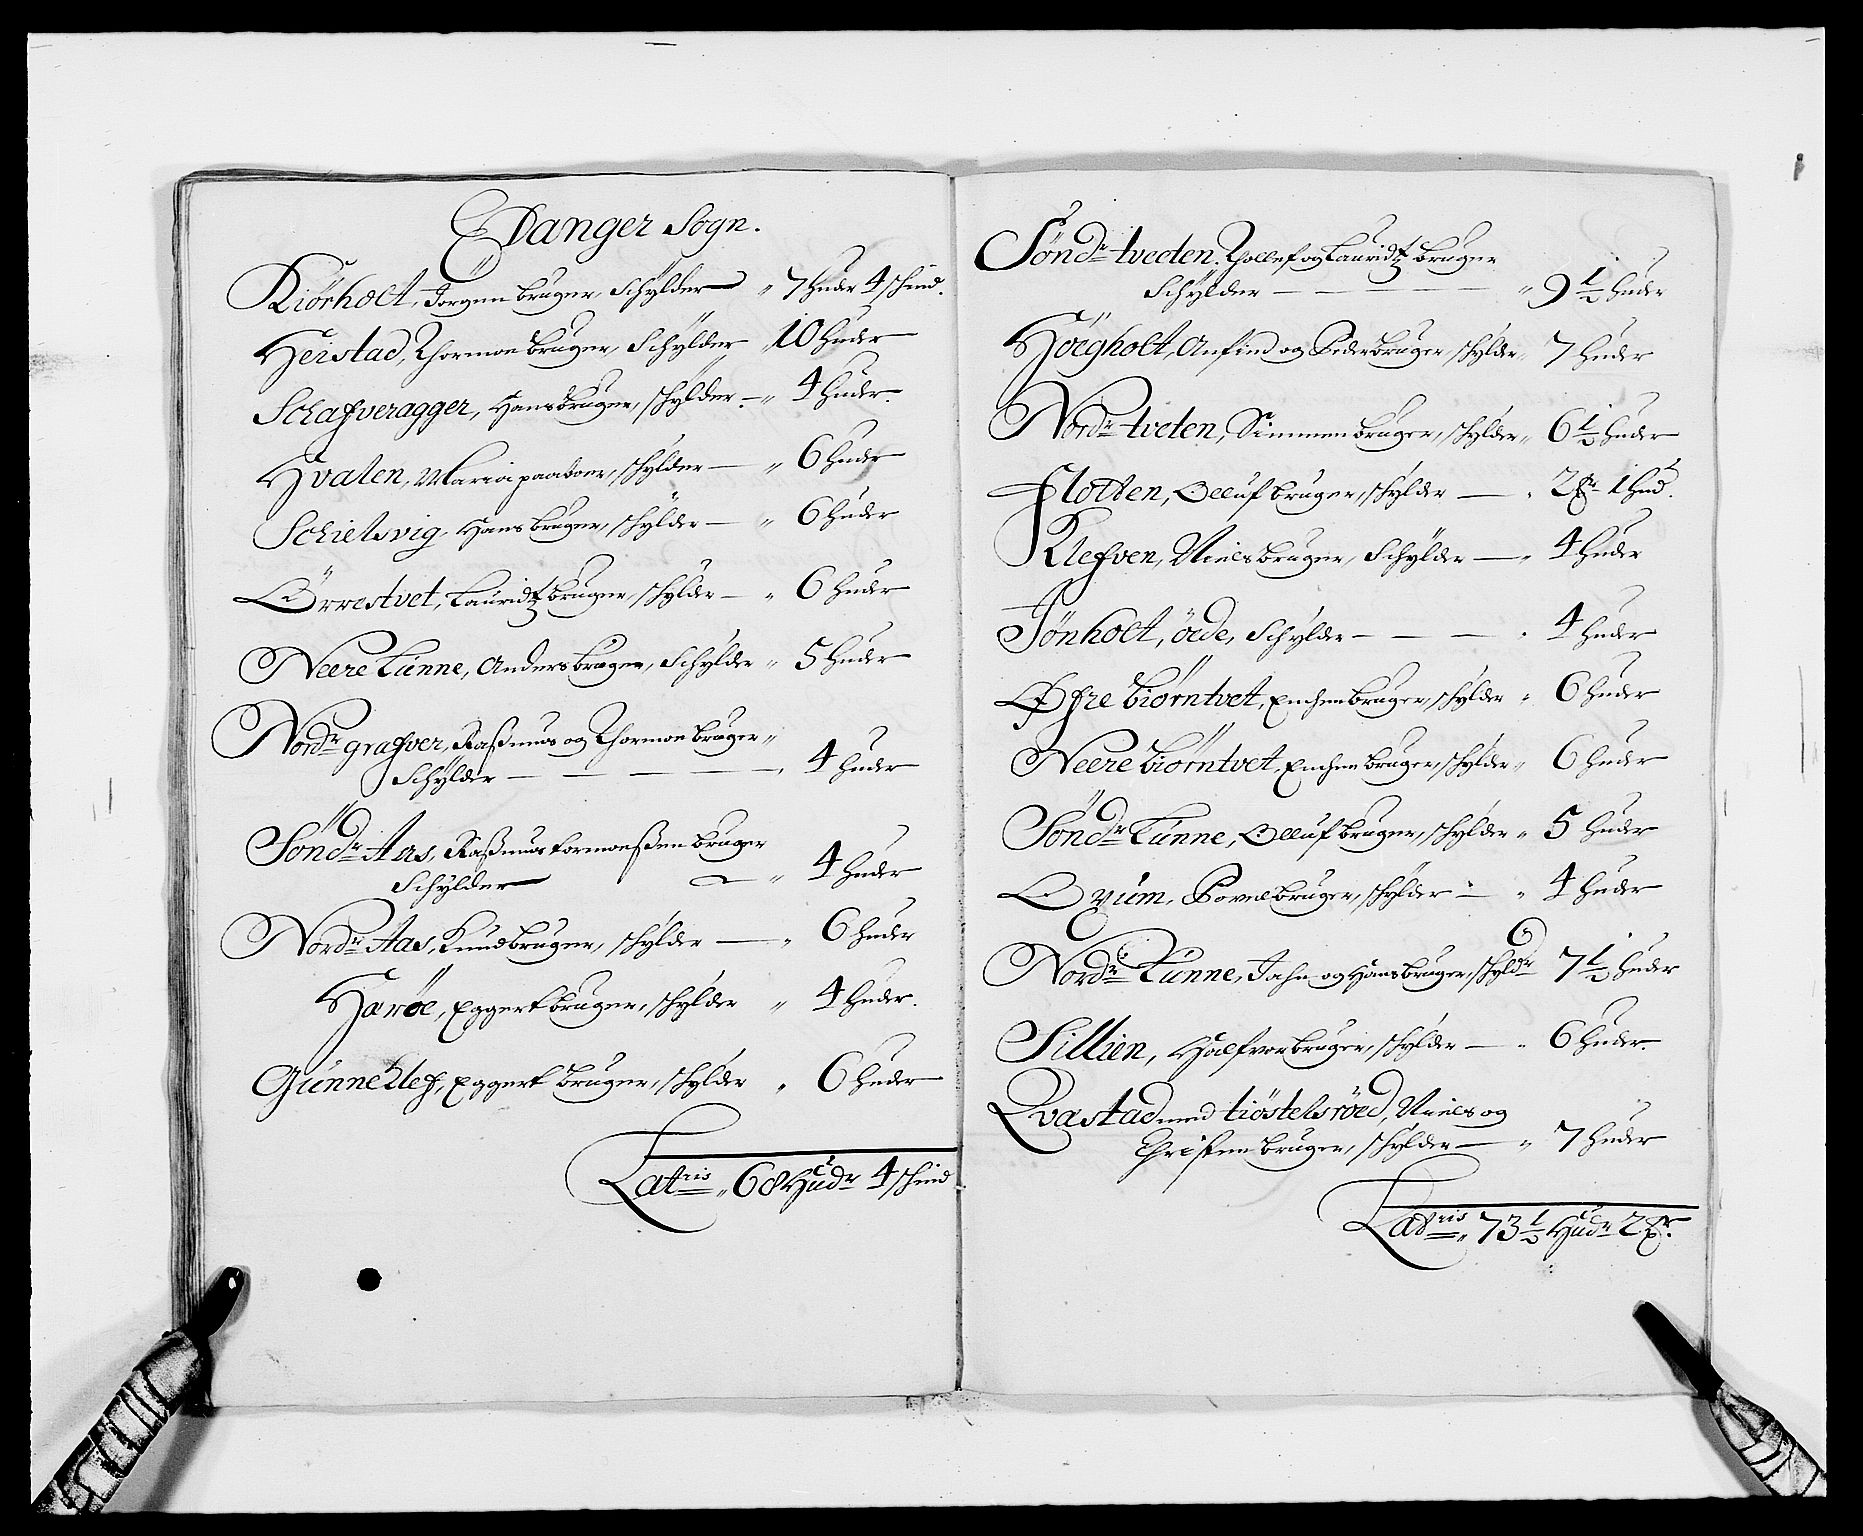 Edanger Sogn.
Kiörholt, Jörgen bruger, Schylder „ 7 huder 4 schind.
Herstad, Thormoe bruger, Schylder „ 10 huder
Schafveragger, Hans bruger, schylder. — „ 4 huder.
Hvalen, Maria paaboer, schylder — „ 6 huder
Schielsvig, Hans bruger, schylder — „ 6 huder
Örrestvet, Lauridtz bruger, schylder — „ 6 huder
Neere Lunne, Anders bruger, Schylder „ 5 huder
Nordr grafver, Raßmus og Thormoe bruger
Schylder — — — — „ 4 huder
Söndr Aas, Raßmus tormoeßen bruger
Schylder — „ 4 huder
Nordr Aas, Knud bruger, schylder — „ 6 huder
Harröe, Eggert bruger, schylder „ 4 huder.
Gunneklef, Eggert bruger, schylder „ 6 huder
Latris „ 68 Hudr 4 schind
Söndr tvedten, Thollef og Lauridtz bruger
Schylder — — — — „ 9 1/2 huder
Höegholt, Anfind og Peder bruger, schylder „ 7 huder
Nordr tveten, Simmen bruger, schylder „ 6 1/2 huder
Flotten, Olluf bruger, schylder — „ 2 Pr 1 hud.
Klefven, Niels bruger, Schylder — „ 4 huder
Jönholt, öde, Schylder — — — „ 4 huder
Öfre biörntvet, Enchen bruger, schylder „ 6 huder
Neere biörntvet, Enchen bruger, schylder „ 6 huder
Söndr Lunne, Olluf bruger, schylder „ 5 huder
Ovrum, Povel bruger, schylder — „ 4 huder
Nordre Lunne, Jahn og Hans bruger, schyldr 7 1/2 huder
Sillien, Halfvor bruger, schylder — „ 6 huder.
Qvastad med tiöstelsröed, Niels og
Christen bruger, schylder — „ 7 huder
Latris „ 73 1/2 Hudr 2 Pr.